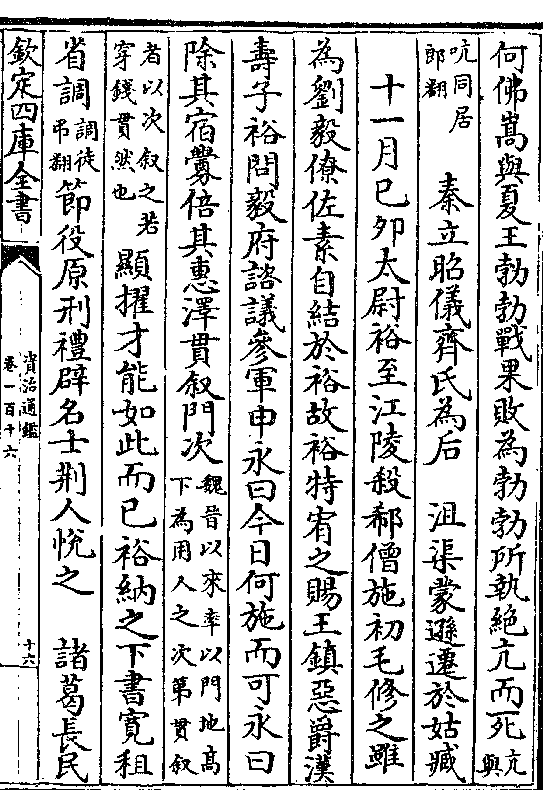 何佛嵩與夏王勃勃戰果敗為勃勃所執絶亢而死亢與
吭同居郎翻　秦立昭儀齊氏為后　沮渠蒙遜遷於姑臧
十一月己卯太尉裕至江陵殺郗僧施初毛修之雖
為劉毅僚佐素自結於裕故裕特宥之賜王鎮惡爵漢
壽子裕問毅府諮議參軍申永曰今日何施而可永曰
除其宿釁倍其惠澤貫叙門次魏晉以來率以門地高下為用人之次第貫叙
者以次叙之若穿錢貫然也顯擢才能如此而已裕納之下書寛租
省調調徒弔翻節役原刑禮辟名士荆人悅之　諸葛長民
欽定四庫全書
資治通鑑
卷一百十六
十六